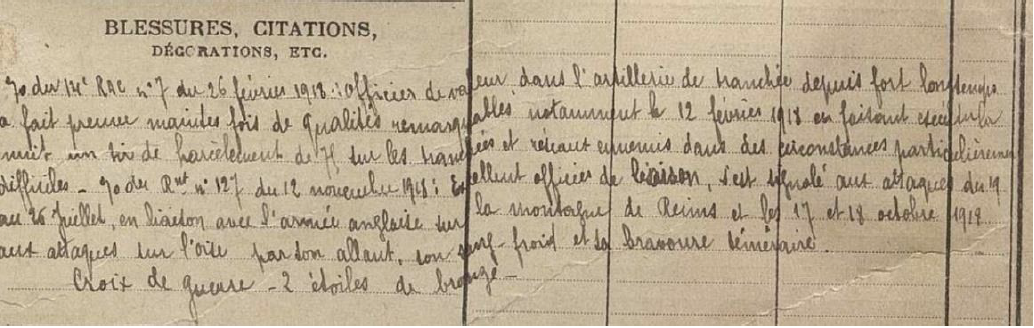 BLESSURES, CITATIONS,
DÉCORATIONS, ETC.
Jo du 14e RAC n°7 du 26 février 1918 : Officier de valeur dans l'artillerie de tranchée depuis fort longtemps
a fait preuve maintes fois de qualités remarquables notamment le 12 février 1918 en faisant exécuter la
nuit un tir de harcèlement de 7h sur les tranchées et réseaux ennemis dans des circonstances particulièrement
difficiles - Jo du Rmt n° 127 du 12 novembre 1918 : Excellent officier de liaison, s'est signalé aux attaques du 19
au 26 Juillet, en liaison avec l'armée anglaise sur la montagne de Reims et les 17 et 18 octobre 1918
aux attaques sur l'oise par son allant, son sang-froid et sa bravoure téméraire.
Croix de guerre - 2 étoiles de bronze -